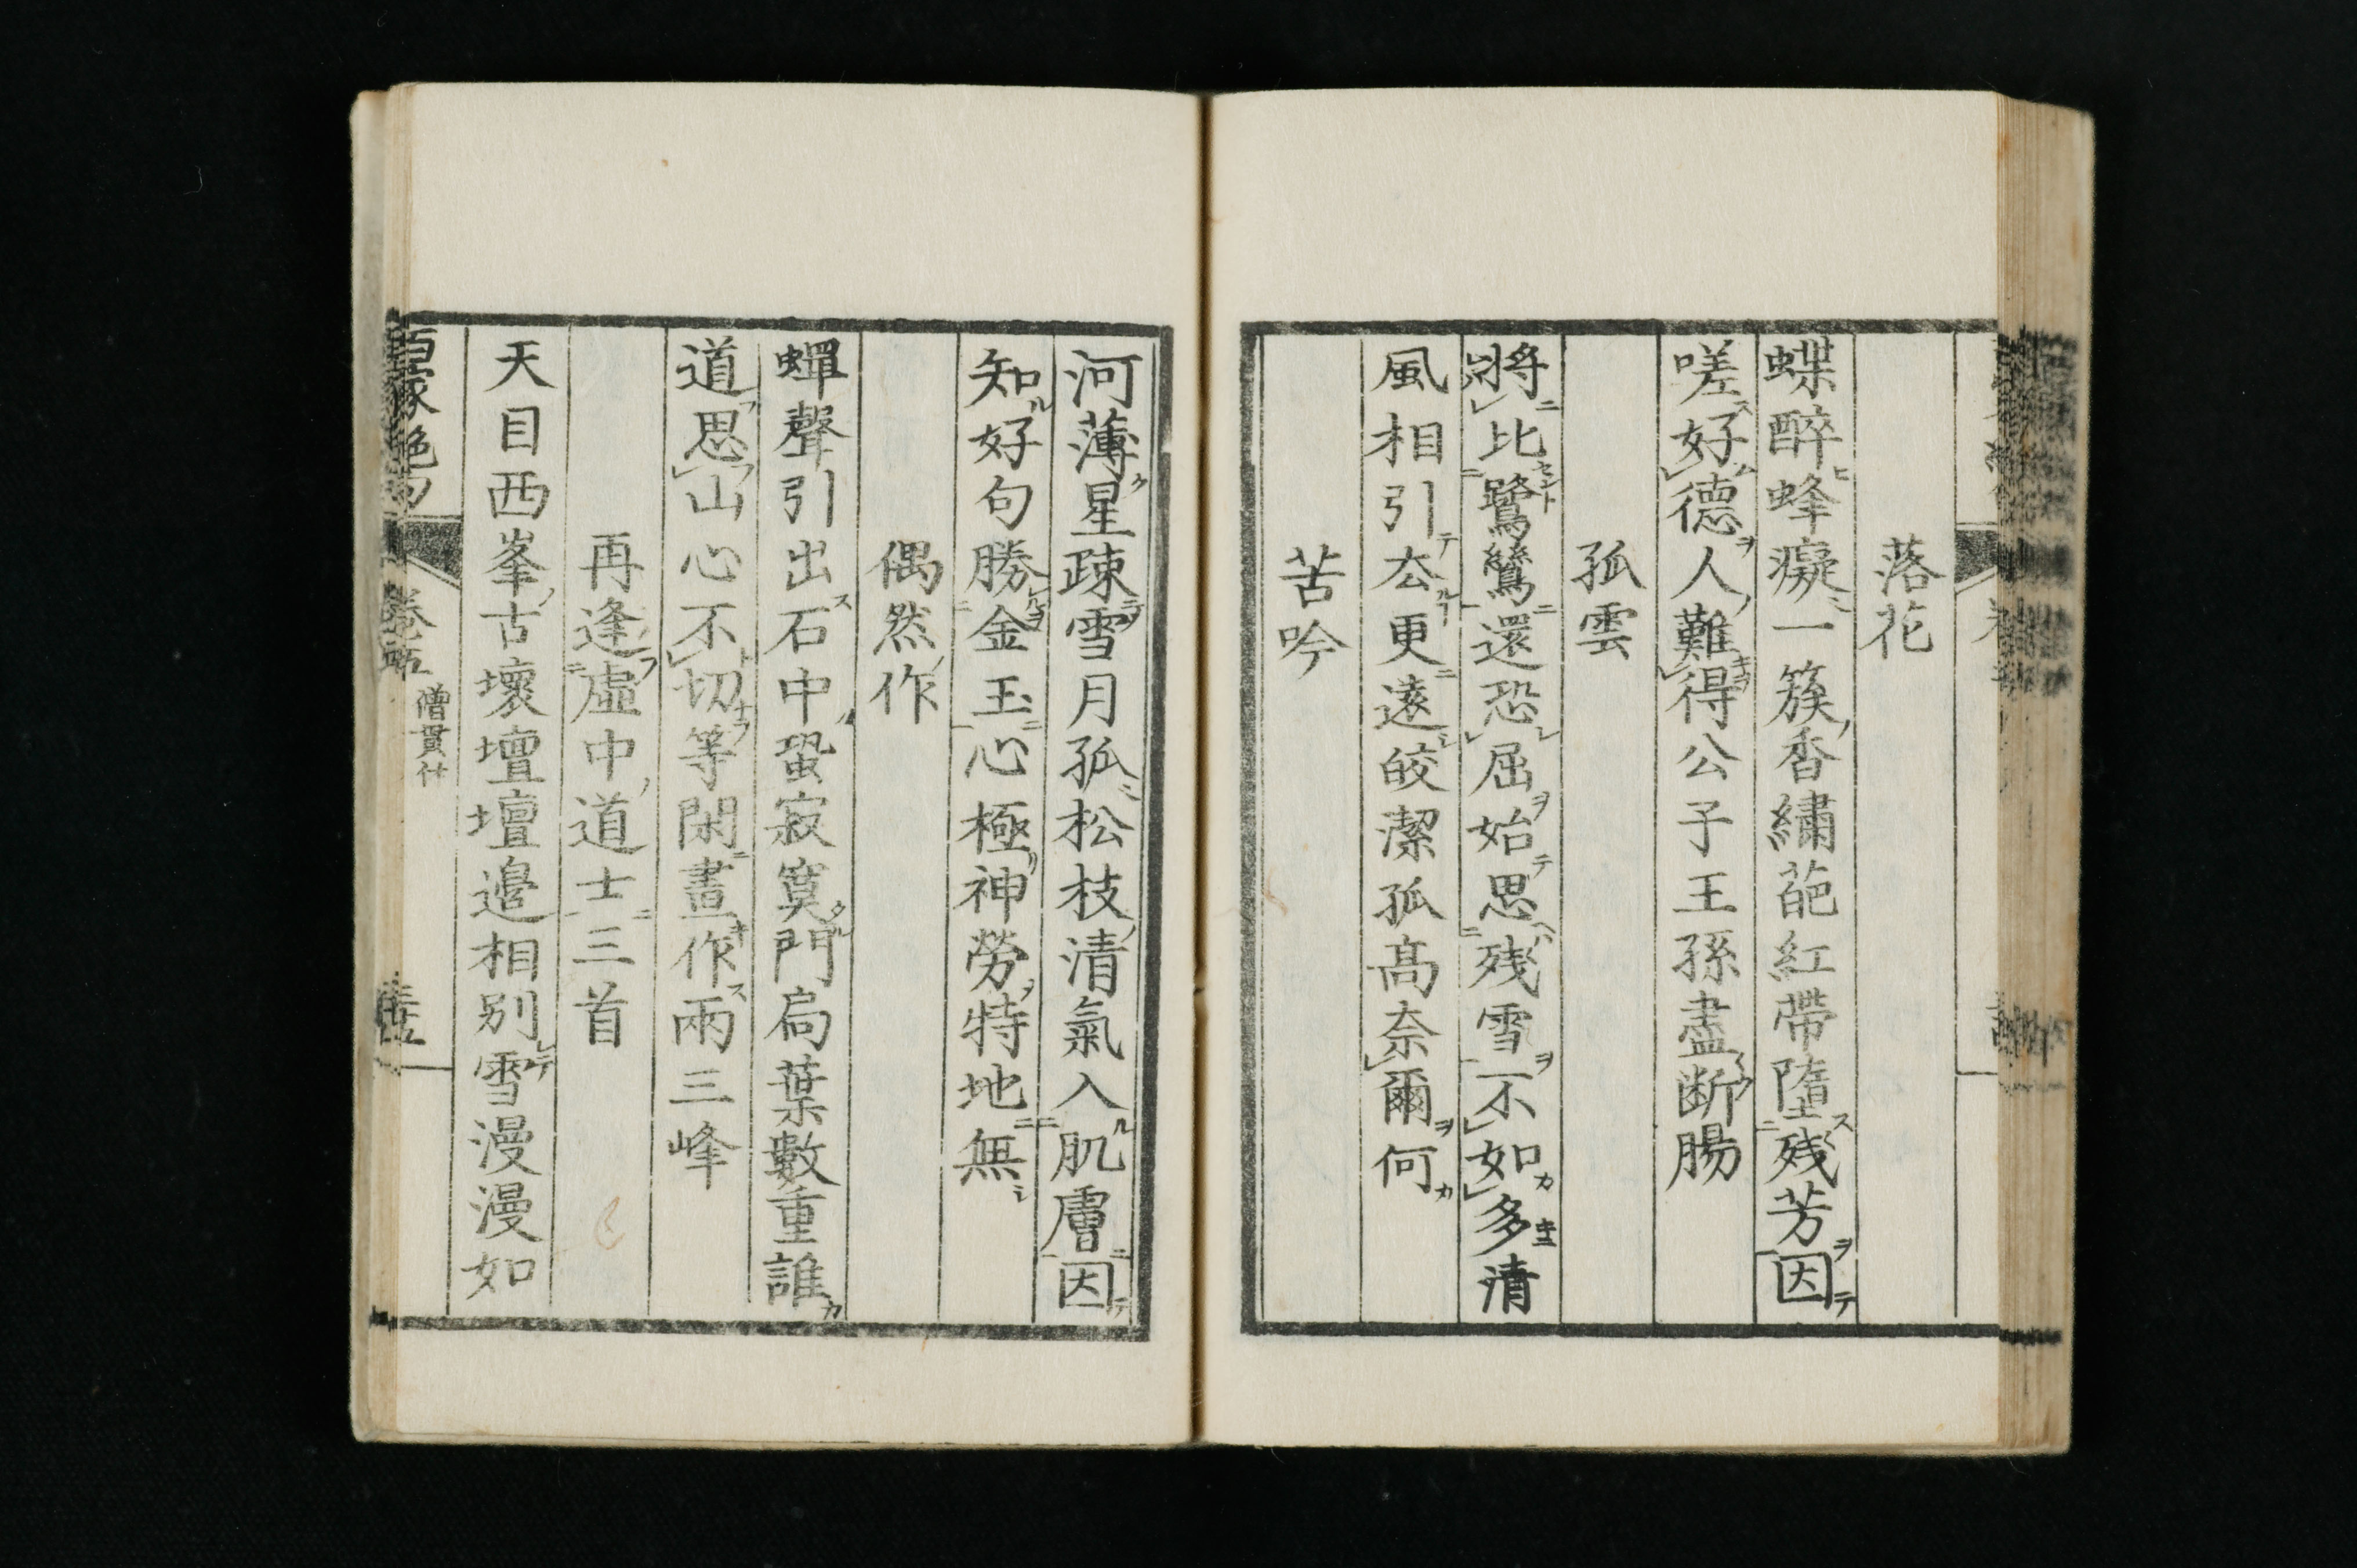 落花
蝶醉蜂癡一簇香繡葩紅帶墮残芳因
嗟好德人難得公子王孫盡断腸
孤雲
將比鷺鷥還恐屈始思残雪不如多清
風相引去更遠皎潔孤高奈爾何
苦吟
河薄星疎雪月孤松枝清氣入肌膚因
知好句勝金玉心極神勞特地無
偶然作
蟬聲引出石中蛩寂寞門扃葉數重誰
道思山心不切等閑畫作兩三峰
再逢虛中道士三首
天目西峯古壞壇壇邉相別雪漫漫如
百家絶句
僧貫休